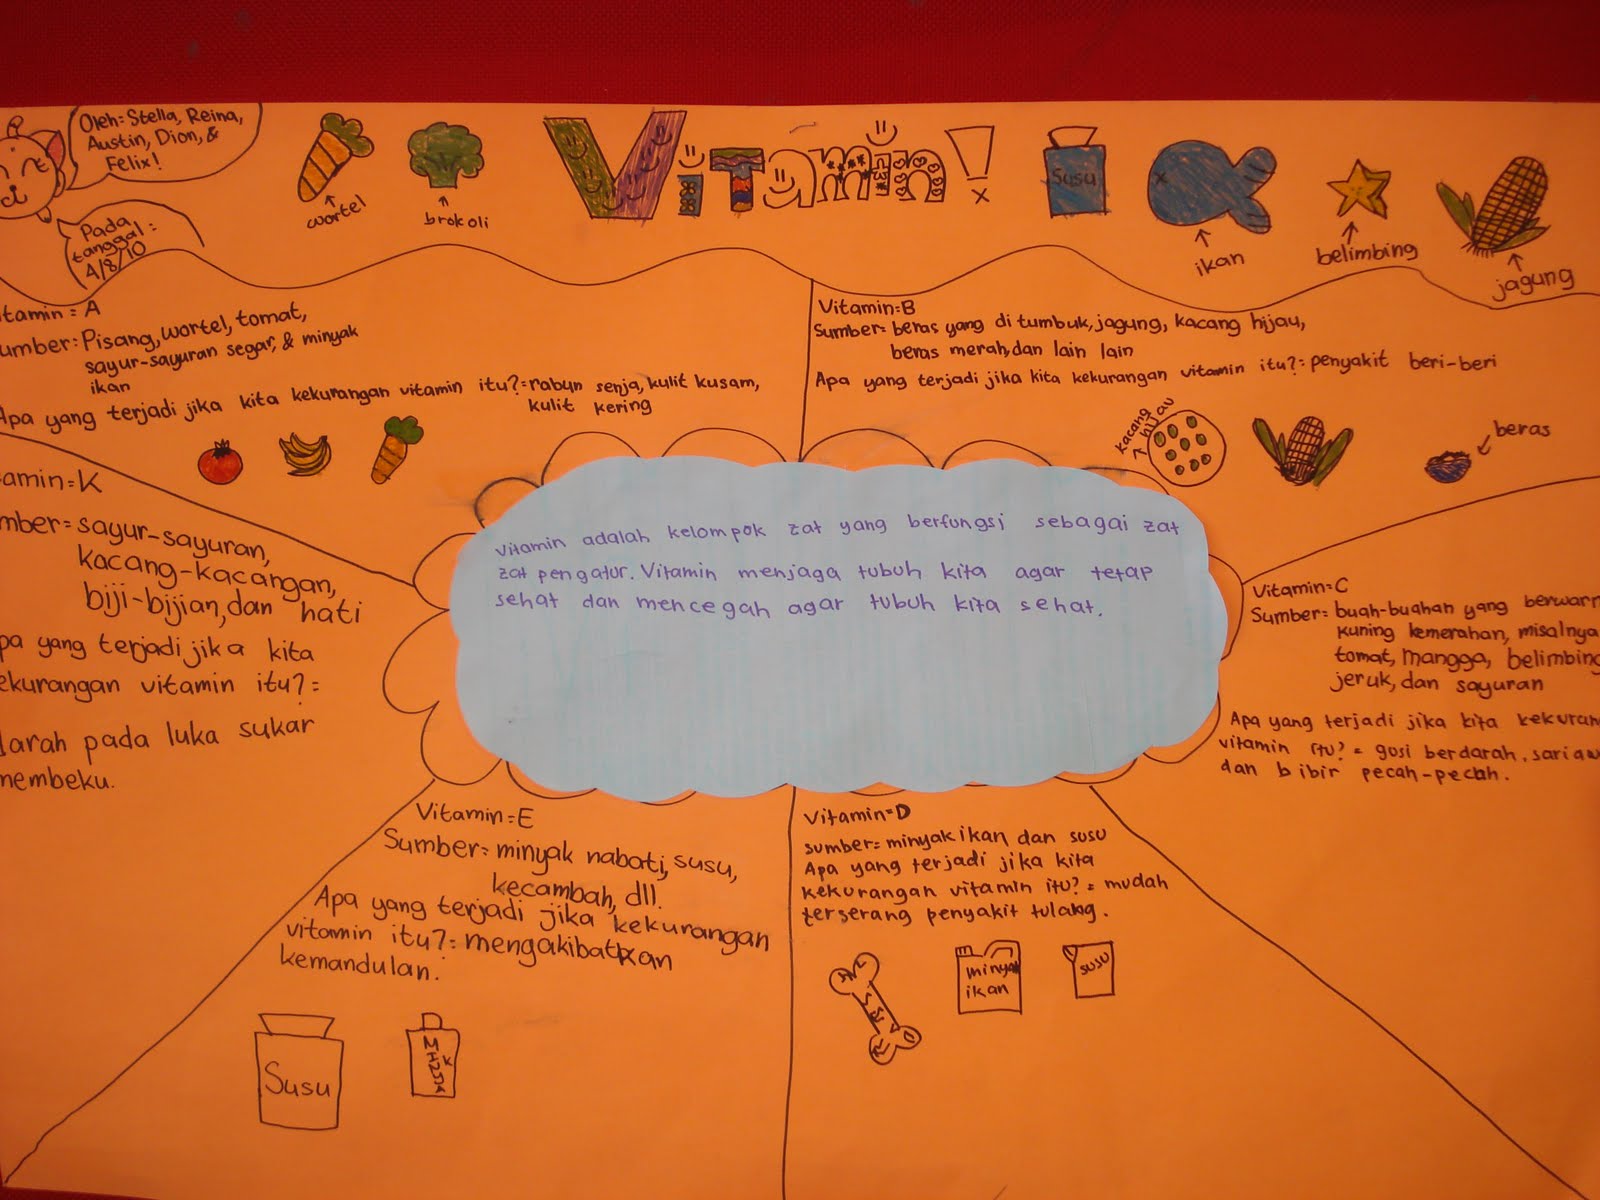 Oleh: Stella, Reina,
Austin, Dion, &
Felix!
Pada
tanggal:
4/8/10
wortel
brokoli
Vitamin!
Susu
ikan
belimbing
jagung
tamin = A
umber: Pisang, wortel, tomat,
sayur-sayuran segar, & minyak
ikan
Apa yang terjadi jika kita kekurangan vitamin itu?= rabun senja, kulit kusam,
kulit kering
Vitamin=B
Sumber= beras yang di tumbuk, jagung, kacang hijau,
beras merah, dan lain lain
Apa yang terjadi jika kita kekurangan vitamin itu?= penyakit beri-beri
kacang
hijau
beras
amin=K
mber= sayur-sayuran,
kacang-kacangan,
biji-bijian, dan hati
pa yang terjadi jika kita
ekurangan vitamin itu?=
darah pada luka sukar
membeku.
vitamin adalah kelompok zat yang berfungsi sebagai zat
zat pengatur. Vitamin menjaga tubuh kita agar tetap
sehat dan mencegah agar tubuh kita sehat.
Vitamin=C
Sumber= buah-buahan yang berwarn
kuning kemerahan, misalnya
tomat, mangga, belimbing
jeruk, dan sayuran
Apa yang terjadi jika kita kekuran
vitamin itu? = gusi berdarah, sariaw
dan bibir pecah-pecah.
Vitamin=E
Sumber= minyak nabati, susu,
kecambah, dll.
Apa yang terjadi jika kekurangan
vitamin itu?= mengakibatkan
kemandulan.
Susu
Vitamin=D
sumber= minyak ikan dan susu
Apa yang terjadi jika kita
kekurangan vitamin itu? = mudah
terserang penyakit tulang.
minyak
ikan
susu